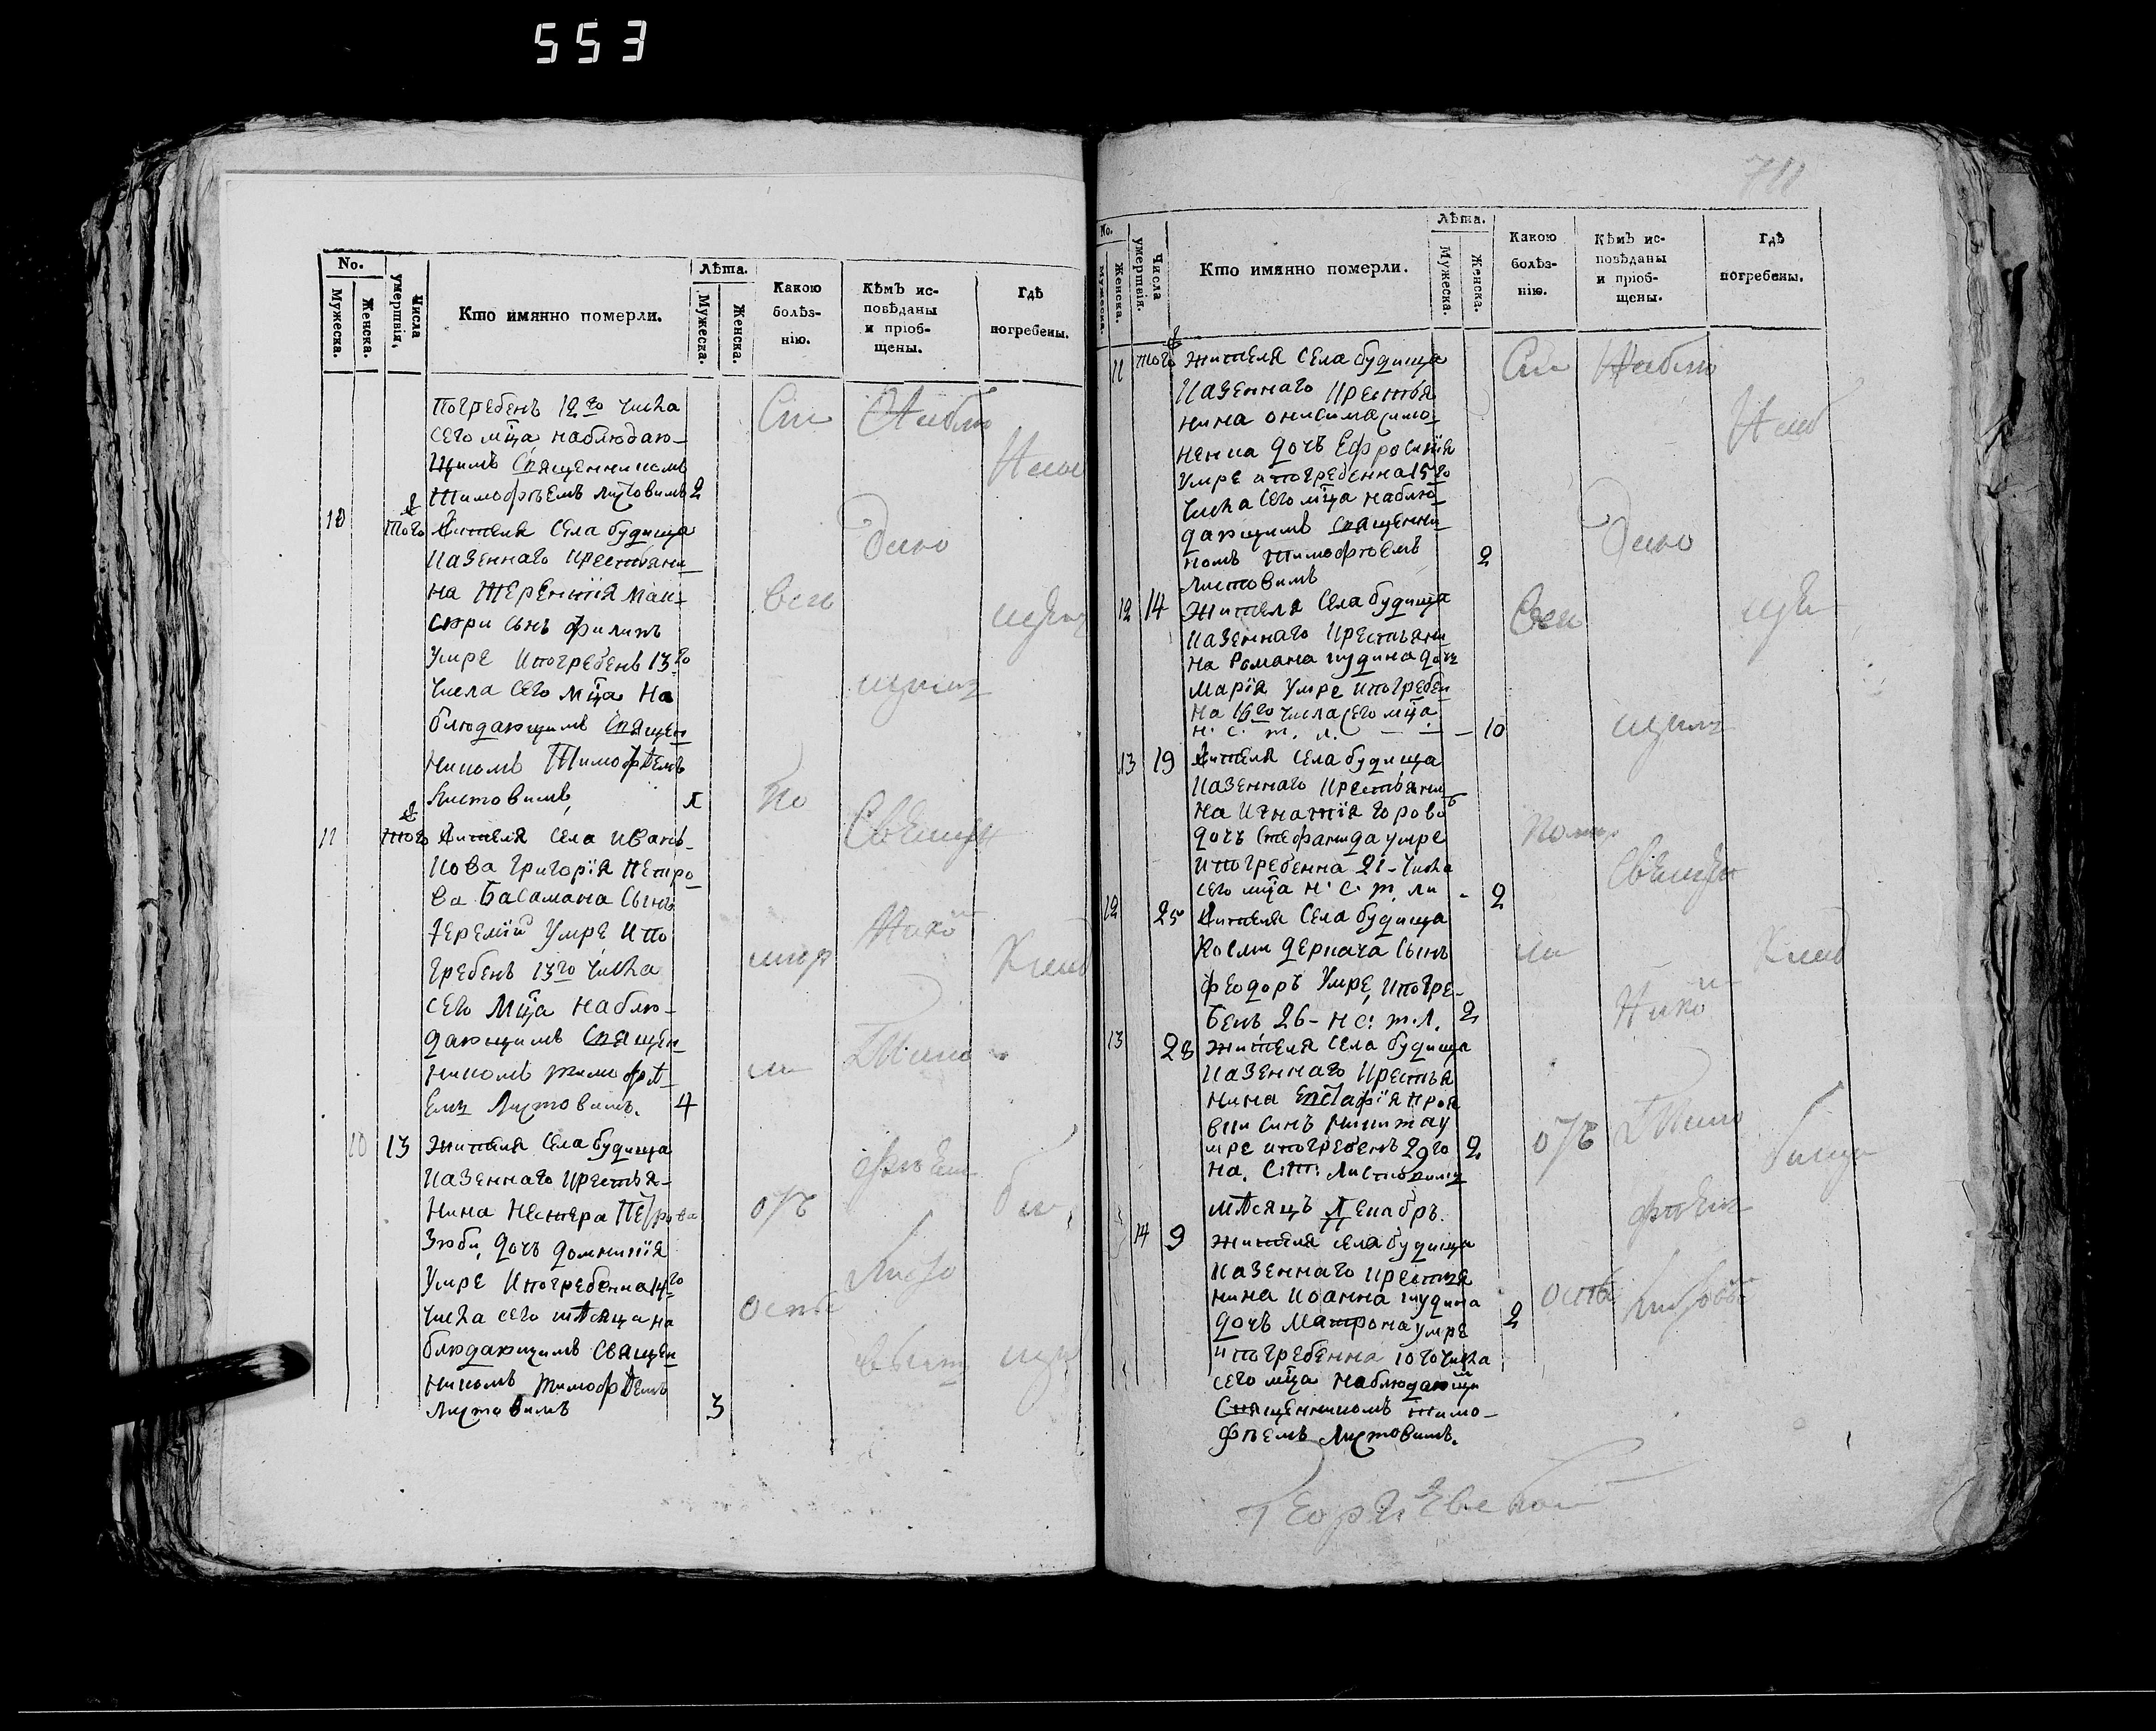 553
No.
Мужеска.
Женска.
Числа умертвія.
Кто имянно померли.
Лѣта.
Мужеска.
Женска.
Какою болѣз-
нію.
Кѣмъ ис-
повѣданы
и пріоб-
щены.
Гдѣ
погребены.
погребенъ 12го числа
сего мца наблюдаю-
щимъ Священникомъ
Тимофѣемъ Листовимъ 2
10 того Жителя села будища
казеннаго крестьяни-
на Терентія
сынъ филипъ
умре и погребенъ 13го
числа сего мца на
блюдающимъ Священ
никомъ Тимофѣемъ
Листовимъ 1
11 того Жителя села иванъ-
кова григорія Петро
ва Басамана сынъ
Іеремій умре и по
гребенъ 13го числа
сего мца наблю-
дающимъ Священ
никомъ тимофѣ
емъ Листовимъ. 4
10 13 Жителя села будища
казеннаго крестья-
нина Нестера Петрова
дочь домникія
умре и погребенна 14го
числа сего мѣсяца на
блюдающимъ Священ
никомъ тимофѣемъ
Листовимъ 3
Сіи
всѣ
по
мер
ли
отъ
оспы
Наблю
даю
щимъ
Свѣщен
Нико
Тимо
фѣем
Листо
вымъ
No.
Мужеска.
Женска.
Числа умертвія.
Кто имянно померли.
Лѣта.
Мужеска.
Женска.
Какою
болѣз-
нію.
Кѣмъ ис-
повѣданы
и пріоб-
щены.
Гдѣ
погребены.
11 того жителя села будища
казеннаго крестья
нина онисима
дочь Ефросинія
умре и погребенна 15го
числа сего мца наблю
дающимъ Священни
комъ Тимофѣемъ 2
Листовимъ
12 14 Жителя села будища
казеннаго крестьяни
на Романа гудина дочь
Марія умре и погребен
на 16го числа сего мца
н. с. т. л. 10
13 19 Жителя села будища
казеннаго крестьяни
на Игнатія
дочь Стефанида умре
и погребенна 21 числа
сего мца н. с. т. ли 2
12 25 Жителя села будища
Косми дернача сынъ
феодоръ умре, и погре-
бенъ 26 н с. т. л. 2
13 28 жителя села будища
казеннаго крестья
нина Евстафія
синъ никита у
мре и погребенъ 29го 2
на. с: т: листовимъ
мѣсяцъ декабрь.
14 9 жителя села будища
казеннаго крестья
нина иоанна гудина
дочь Матрона умре 2
и погребенна 10го числа
сего мца наблюдающи
Священникомъ тимо-
фѣемъ Листовимъ.
Сіи
всѣ
помер
ли
отъ
оспы
Наблю
даю
щимъ
Свѣщен
Нико
Тимо
фѣем
Листовы
Георгіевской